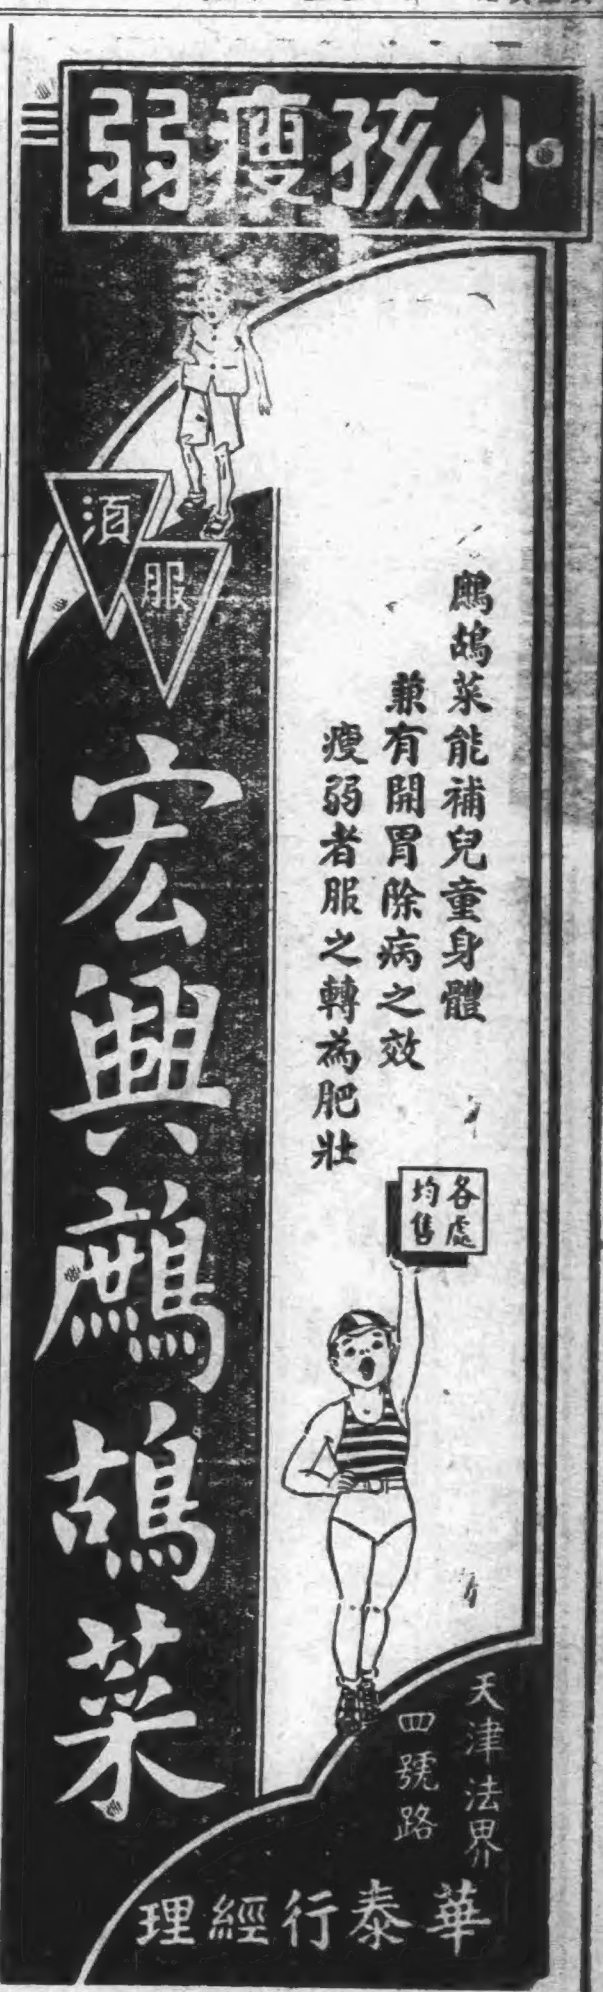 小孩瘦弱
須服
宏興鷓鴣菜
鷓鴣菜能補兒童身體
兼有開胃除病之效
瘦弱者服之轉為肥壯
各處
均售
天津法界
四號路
華泰行經理